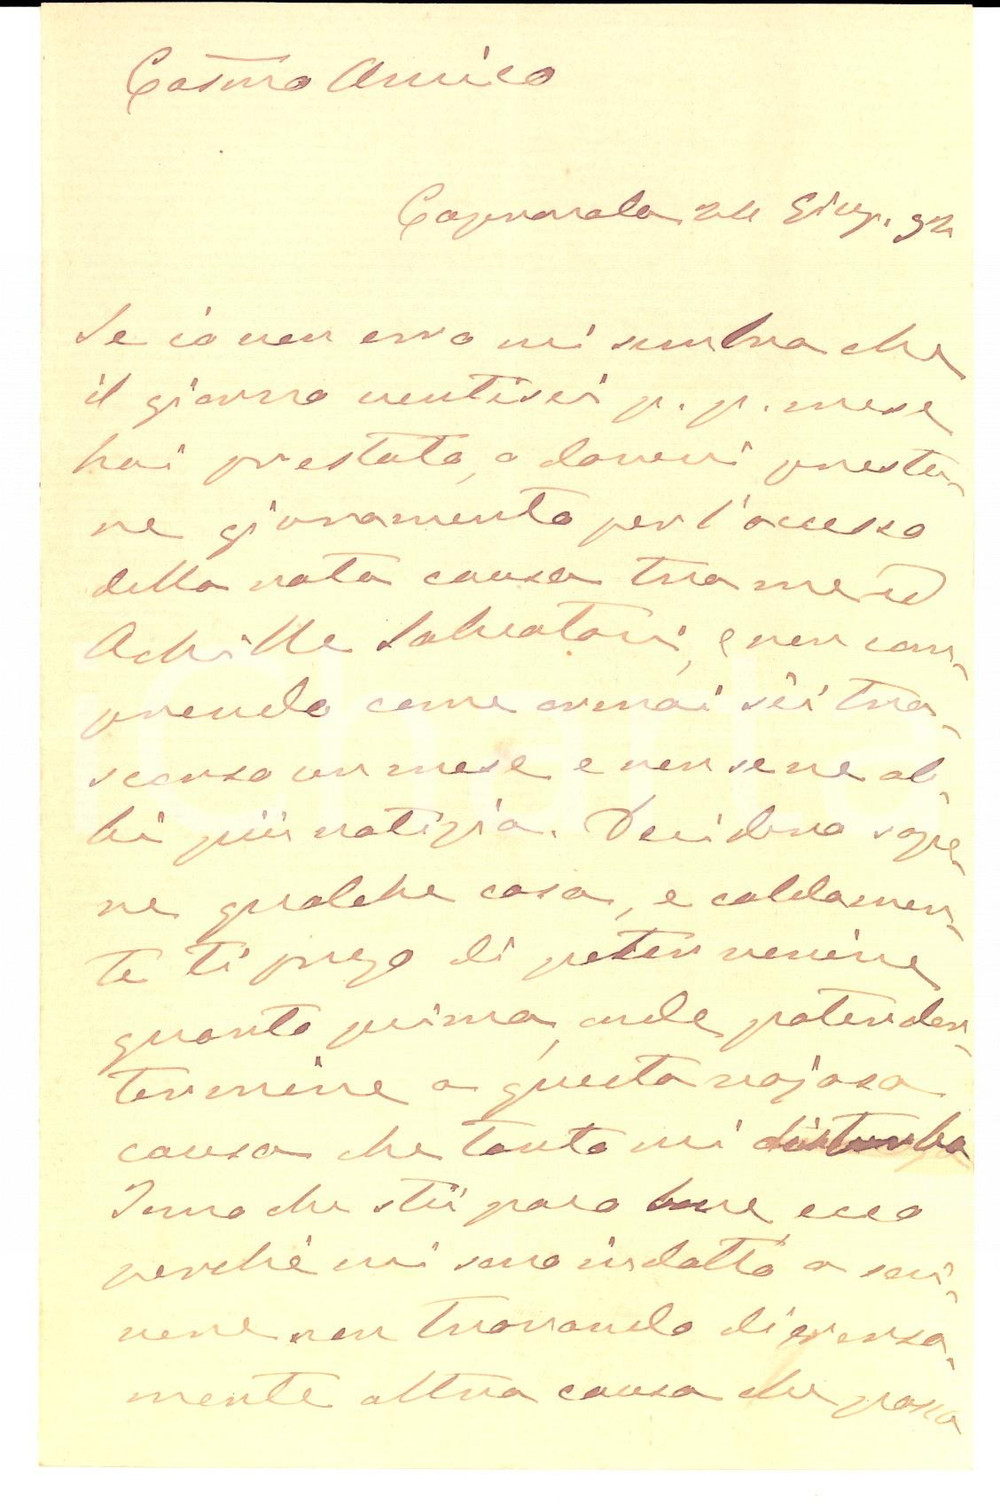 Cosmo Amico
Caprarola 24 Giug. 92
Se io non erro mi sembra che
il giorno ventisei p. p. mese
hai prestato, o dovevi presta-
re giuramento per l'accesso
della nota causa tra me ed
Achille Salvatori, e non com-
prendo come ormai sii tra-
scorso un mese e non se ne ab-
bi più notizia. Desidero sape-
re qualche cosa, e caldamen-
te ti prego di poter venire
quanto prima, onde poter dar
termine a questa nojosa
causa che tanto mi disturba
Temo che stii poco bene, ecco
perchè mi sono indotto a scri-
vere non trovando diversa-
mente altra causa che possa